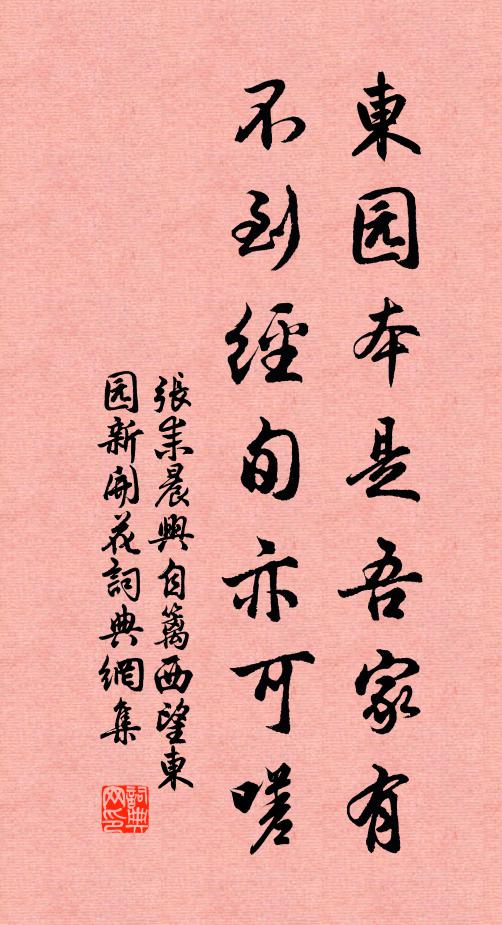 東园本是吾家有
不到經旬亦可嗟
張耒晨興自籬西望東
园新開花詞典網集
詞典
网印